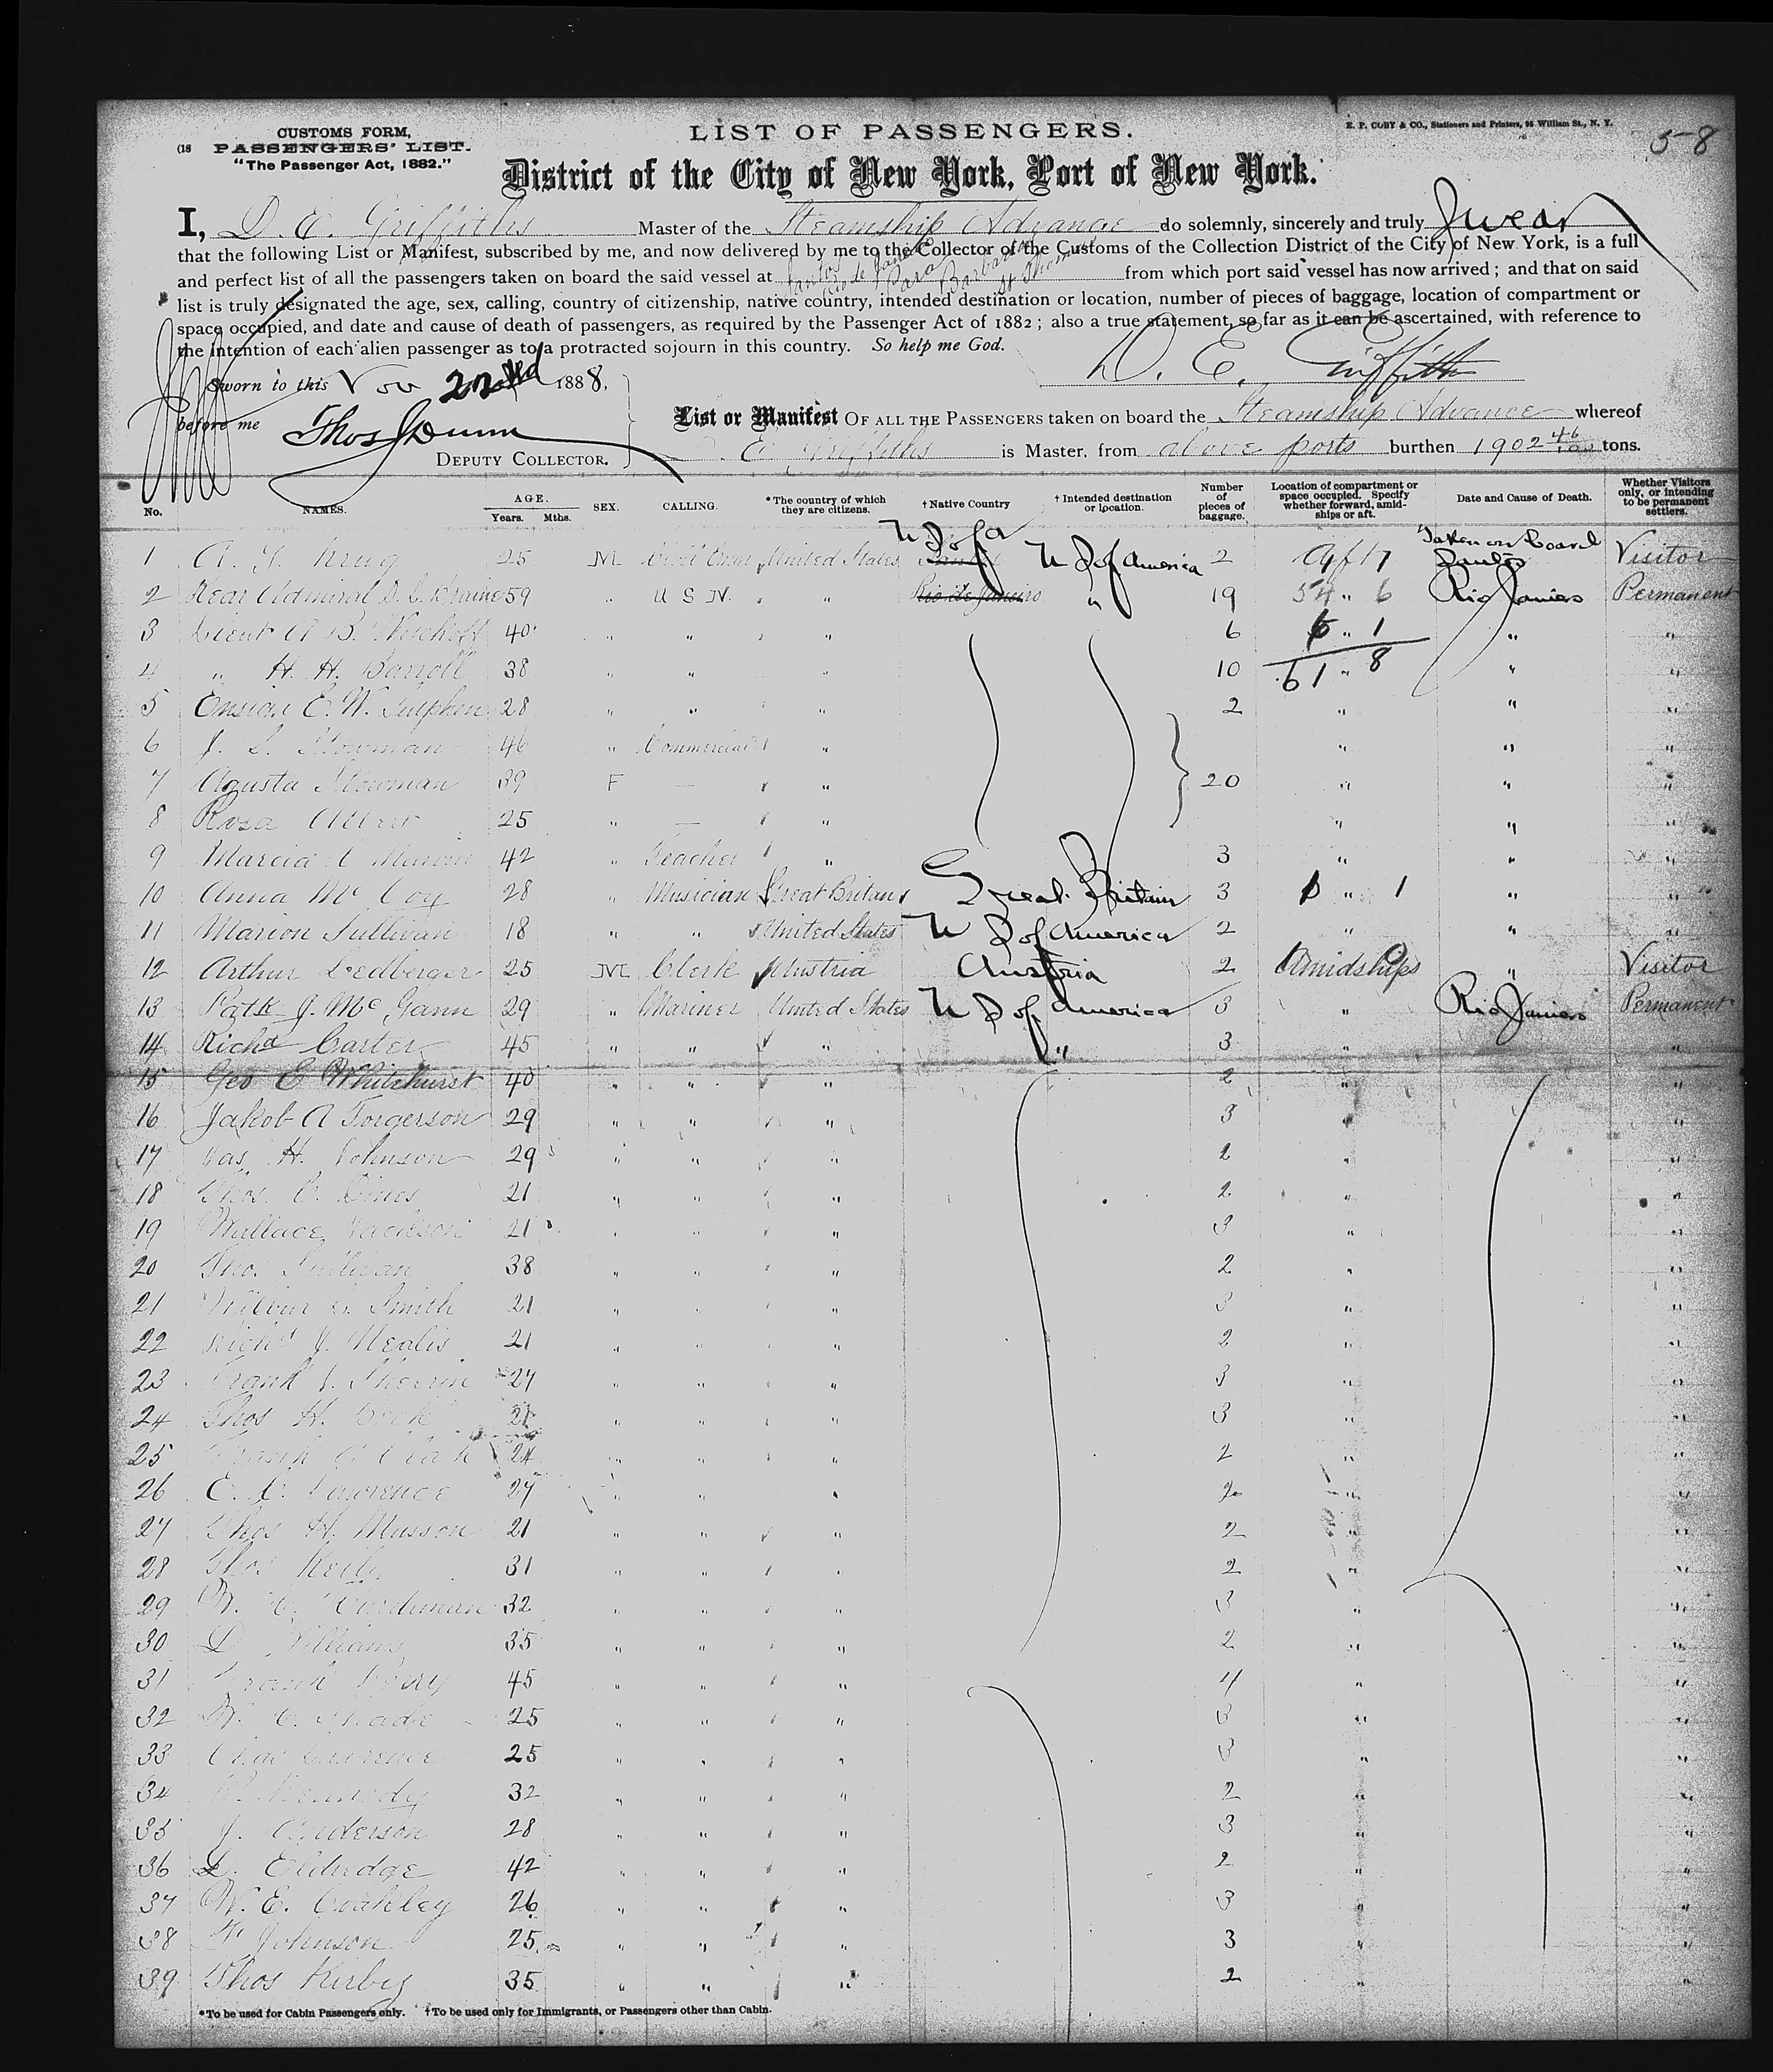 CUSTOMS FORM,
(18 PASSENGERS' LIST.
"The Passenger Act, 1882."
LIST OF PASSENGERS.
E. P. COBY & CO., Stationers and Printers, 95 William St., N. Y.
58
District of the City of New York, Port of New York.
I, D. E. Griffiths Master of the Steamship Advance do solemnly, sincerely and truly Swear
that the following List or Manifest, subscribed by me, and now delivered by me to the Collector of the Customs of the Collection District of the City of New York, is a full
and perfect list of all the passengers taken on board the said vessel at Santos Rio de Janeiro Para Barbados St Thomas from which port said vessel has now arrived; and that on said
list is truly designated the age, sex, calling, country of citizenship, native country, intended destination or location, number of pieces of baggage, location of compartment or
space occupied, and date and cause of death of passengers, as required by the Passenger Act of 1882; also a true statement, so far as it can be ascertained, with reference to
the intention of each alien passenger as to a protracted sojourn in this country. So help me God.
D. E. Griffiths
Sworn to this Nov 22nd 1888,
before me Thos J Dunn
DEPUTY COLLECTOR.
List or Manifest OF ALL THE PASSENGERS taken on board the Steamship Advance whereof
D. E. Griffiths is Master, from above ports burthen 1902 46/100 tons.
No. NAMES. AGE. Years. Mths. SEX. CALLING. *The country of which they are citizens. †Native Country †Intended destination or location. Number of pieces of baggage. Location of compartment or space occupied. Specify whether forward, amidships or aft. Date and Cause of Death. Whether Visitors only, or intending to be permanent settlers.
1 A. Krug 25 M Civil Engr United States U S of a U S of America 2 Aft 17 Taken on board Santos Visitor
2 Rear Admiral D. L. Braine 59 " U S N. " " Rio de Janeiro " 19 54 " 6 Rio Janiero Permanent
3 Lieut A B. 40 " " " 6 6 " 1 " "
4 " H. H. Barroll 38 " " " 10 61 " 8 " "
5 Ensign E. W. Sutphen 28 " " " 2 " " "
6 J. S. 46 " Commercial " " " "
7 Agusta 39 F — " 20 " " "
8 Rosa Albert 25 " — " " " "
9 Marcia 42 " Teacher " 3 " " "
10 Anna Mc Coy 28 " Musician Great Britain Great Britain 3 " 1 " "
11 Marion Sullivan 18 " " United States U S of America 2 " " "
12 Arthur Ledberger 25 M Clerk Austria Austria 2 Amidships " Visitor
13 Patk J. Mc Gann 29 " Mariner United States U S of America 3 " Rio Janiero Permanent
14 Richd Carter 45 " " " " 3 " "
15 Geo E Whitehurst 40 " " " 2 " "
16 Jakob A Torgerson 29 " " " 3 " "
17 Jas. H. Johnson 29 " " " 2 " "
18 Thos. C. Dines 21 " " " 2 " "
19 Wallace Jackson 21 " " " 3 " "
20 Thos. Sullivan 38 " " " 2 " "
21 Wilbur Smith 21 " " " 3 " "
22 Richd J. Nealis 21 " " " 2 " "
23 Frank J. 27 " " " 3 " "
24 Thos H. Cook 21 " " " 3 " "
25 24 " " " 2 " "
26 E. C. Lawrence 27 " " " 2 " "
27 Thos H. Musson 21 " " " 2 " "
28 Thos Reily 31 " " " 2 " "
29 W. C. 32 " " " 3 " "
30 D. Williams 35 " " " 2 " "
31 Frank 45 " " " 4 " "
32 W. C. Shade 25 " " " 3 " "
33 Chas Lawrence 25 " " " 3 " "
34 Kennedy 32 " " " 2 " "
35 J. Anderson 28 " " " 3 " "
36 L. Eldredge 42 " " " 2 " "
37 W. E. Coakley 26 " " " 3 " "
38 F Johnson 25 " " " 3 " "
39 Thos Kirby 35 " " " 2 " "
*To be used for Cabin Passengers only. †To be used only for Immigrants, or Passengers other than Cabin.